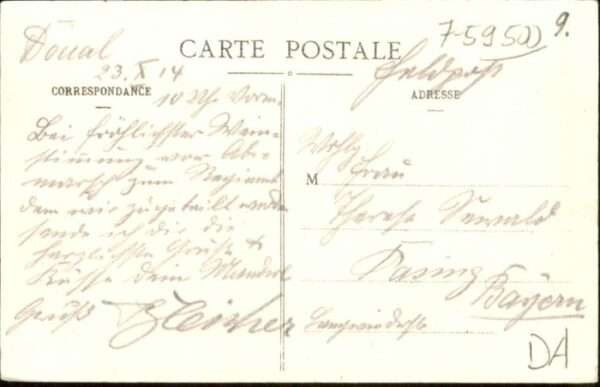 Douai
23. X 14
CARTE POSTALE
7-59500
9.
Feldpost
CORRESPONDANCE
ADRESSE
10 Uhr Vorm.
Bei fröhlichster Wein-
stimmung vor Ab-
marsch zum Regiment
dem wir zugeteilt wurden
sende ich dir die
herzlichste Grüße &
Küsse dein Manderl
Gruß
Wohlg
M Frau
Therese Sewald
Pasing
Bayern
DA